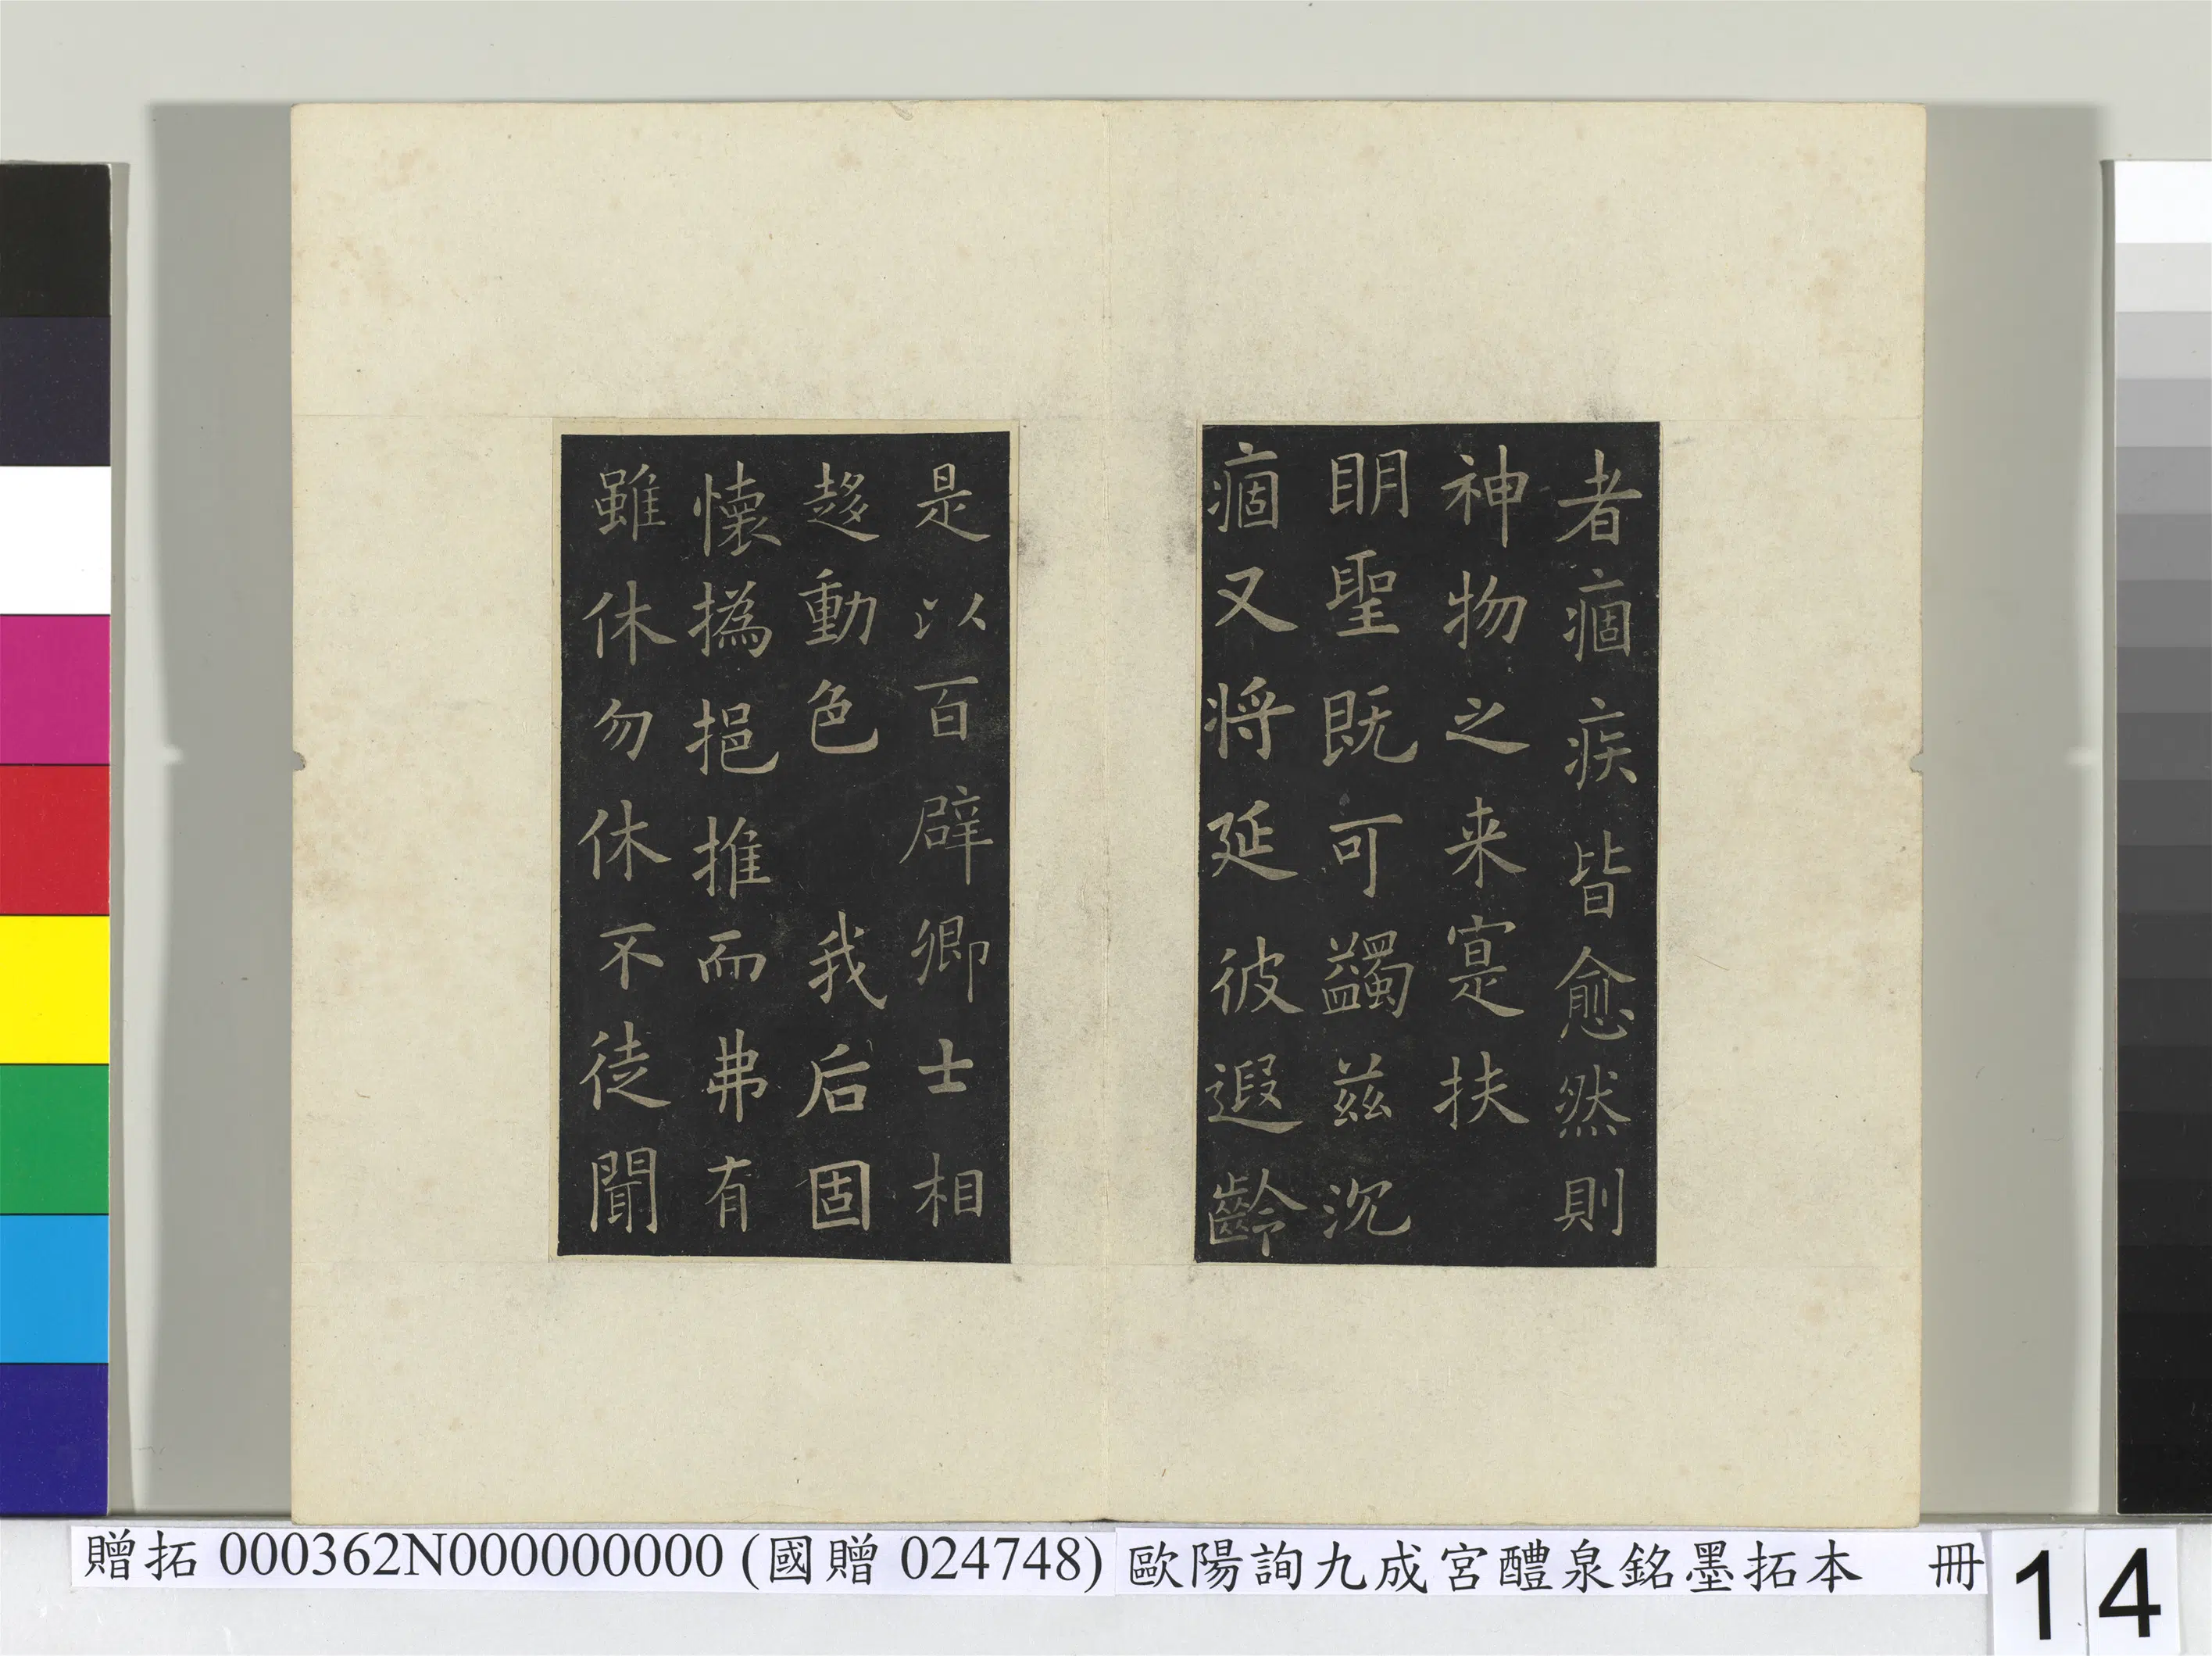 者痼疾皆愈然則
神物之来寔扶
眀聖既可蠲茲沉
痼又将延彼遐齡
是以百辟卿士相
趍動色　我后固
懷撝挹推而弗有
雖休勿休不徒聞
贈拓 000362N000000000 (國贈 024748) 歐陽詢九成宮醴泉銘墨拓本　冊 14